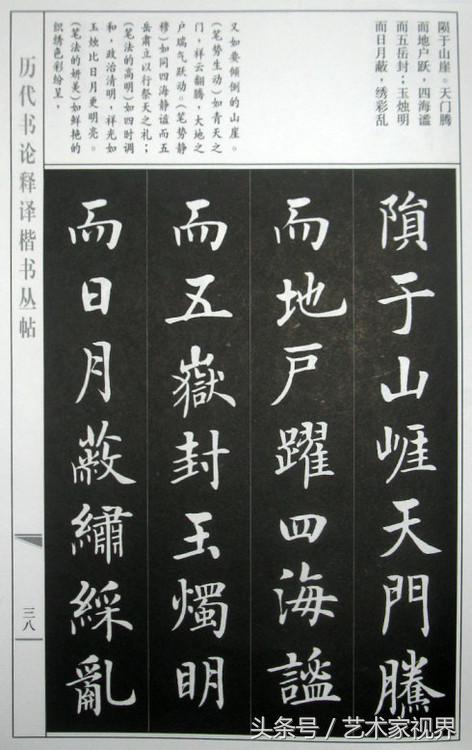 陨于山崖。天门腾
而地户跃，四海谧
而五岳封；玉烛明
而日月蔽，绣彩乱
又如要倾倒的山崖。
(笔势生动)如青天之
门，祥云翻腾，大地之
户瑞气跃动。(笔势静
穆)如同四海静谧而五
岳肃立以行祭天之礼；
(笔法的高明)如四时调
和，政治清明，祥光如
玉烛比日月更明亮。
(笔法的妍美)如鲜艳的
织绣色彩纷呈，
隕于山崕天門騰
而地戸躍四海謐
而五嶽封玉燭明
而日月蔽繡綵亂
历代书论释译楷书丛帖
三八
头条号／艺术家视界